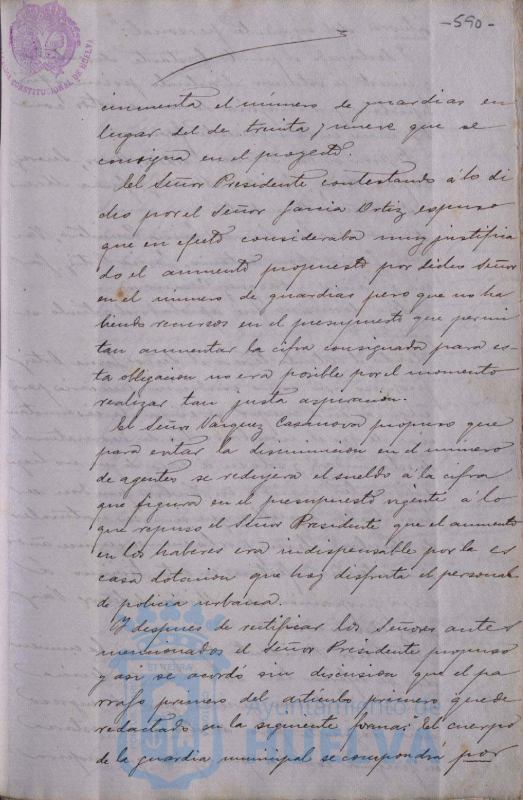 -590-
CONSTITUCIONAL DE HUELVA
cincuenta el número de guardias en
lugar del de treinta y nueve que se
consigna en el proyecto.
El Señor Presidente contestando á lo di
cho por el Señor Garcia Ortiz espuso
que en efecto consideraba muy justifica
do el aumento propuesto por dicho Señor
en el número de guardias pero que no ha
biendo recursos en el presupuesto que permi
tan aumentar la cifra consignada para es
ta obligacion no era posible por el momento
realizar tan justa aspiracion.
El Señor Vazquez Casanova propuso que
para evitar la disminucion en el número
de agentes se redujera el sueldo á la cifra
que figura en el presupuesto vigente á lo
que repuso el Señor Presidente que el aumento
en los haberes era indispensable por la es
casa dotacion que hoy disfruta el personal
de policia urbana.
Y despues de rectificar los Señores antes
mencionados el Señor Presidente propuso
y asi se acordó sin discusion que el pá
rrafo primero del articulo primero quede
redactado en la siguiente forma: "El cuerpo
de la guardia municipal se compondrá por
Ayuntamiento de
HUELVA